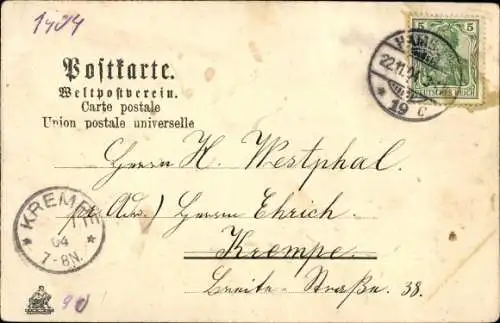 1904
5 5
HAMB
22.11.04
* 19 c
DEUTSCHES REICH
Postkarte.
Weltpostverein.
Carte postale
Union postale universelle
Herrn H. Westphal.
pr. Adr.) Herrn Ehrich
KREMPE
04
7-8N.
Krempe.
Breite-Straße 38.
90